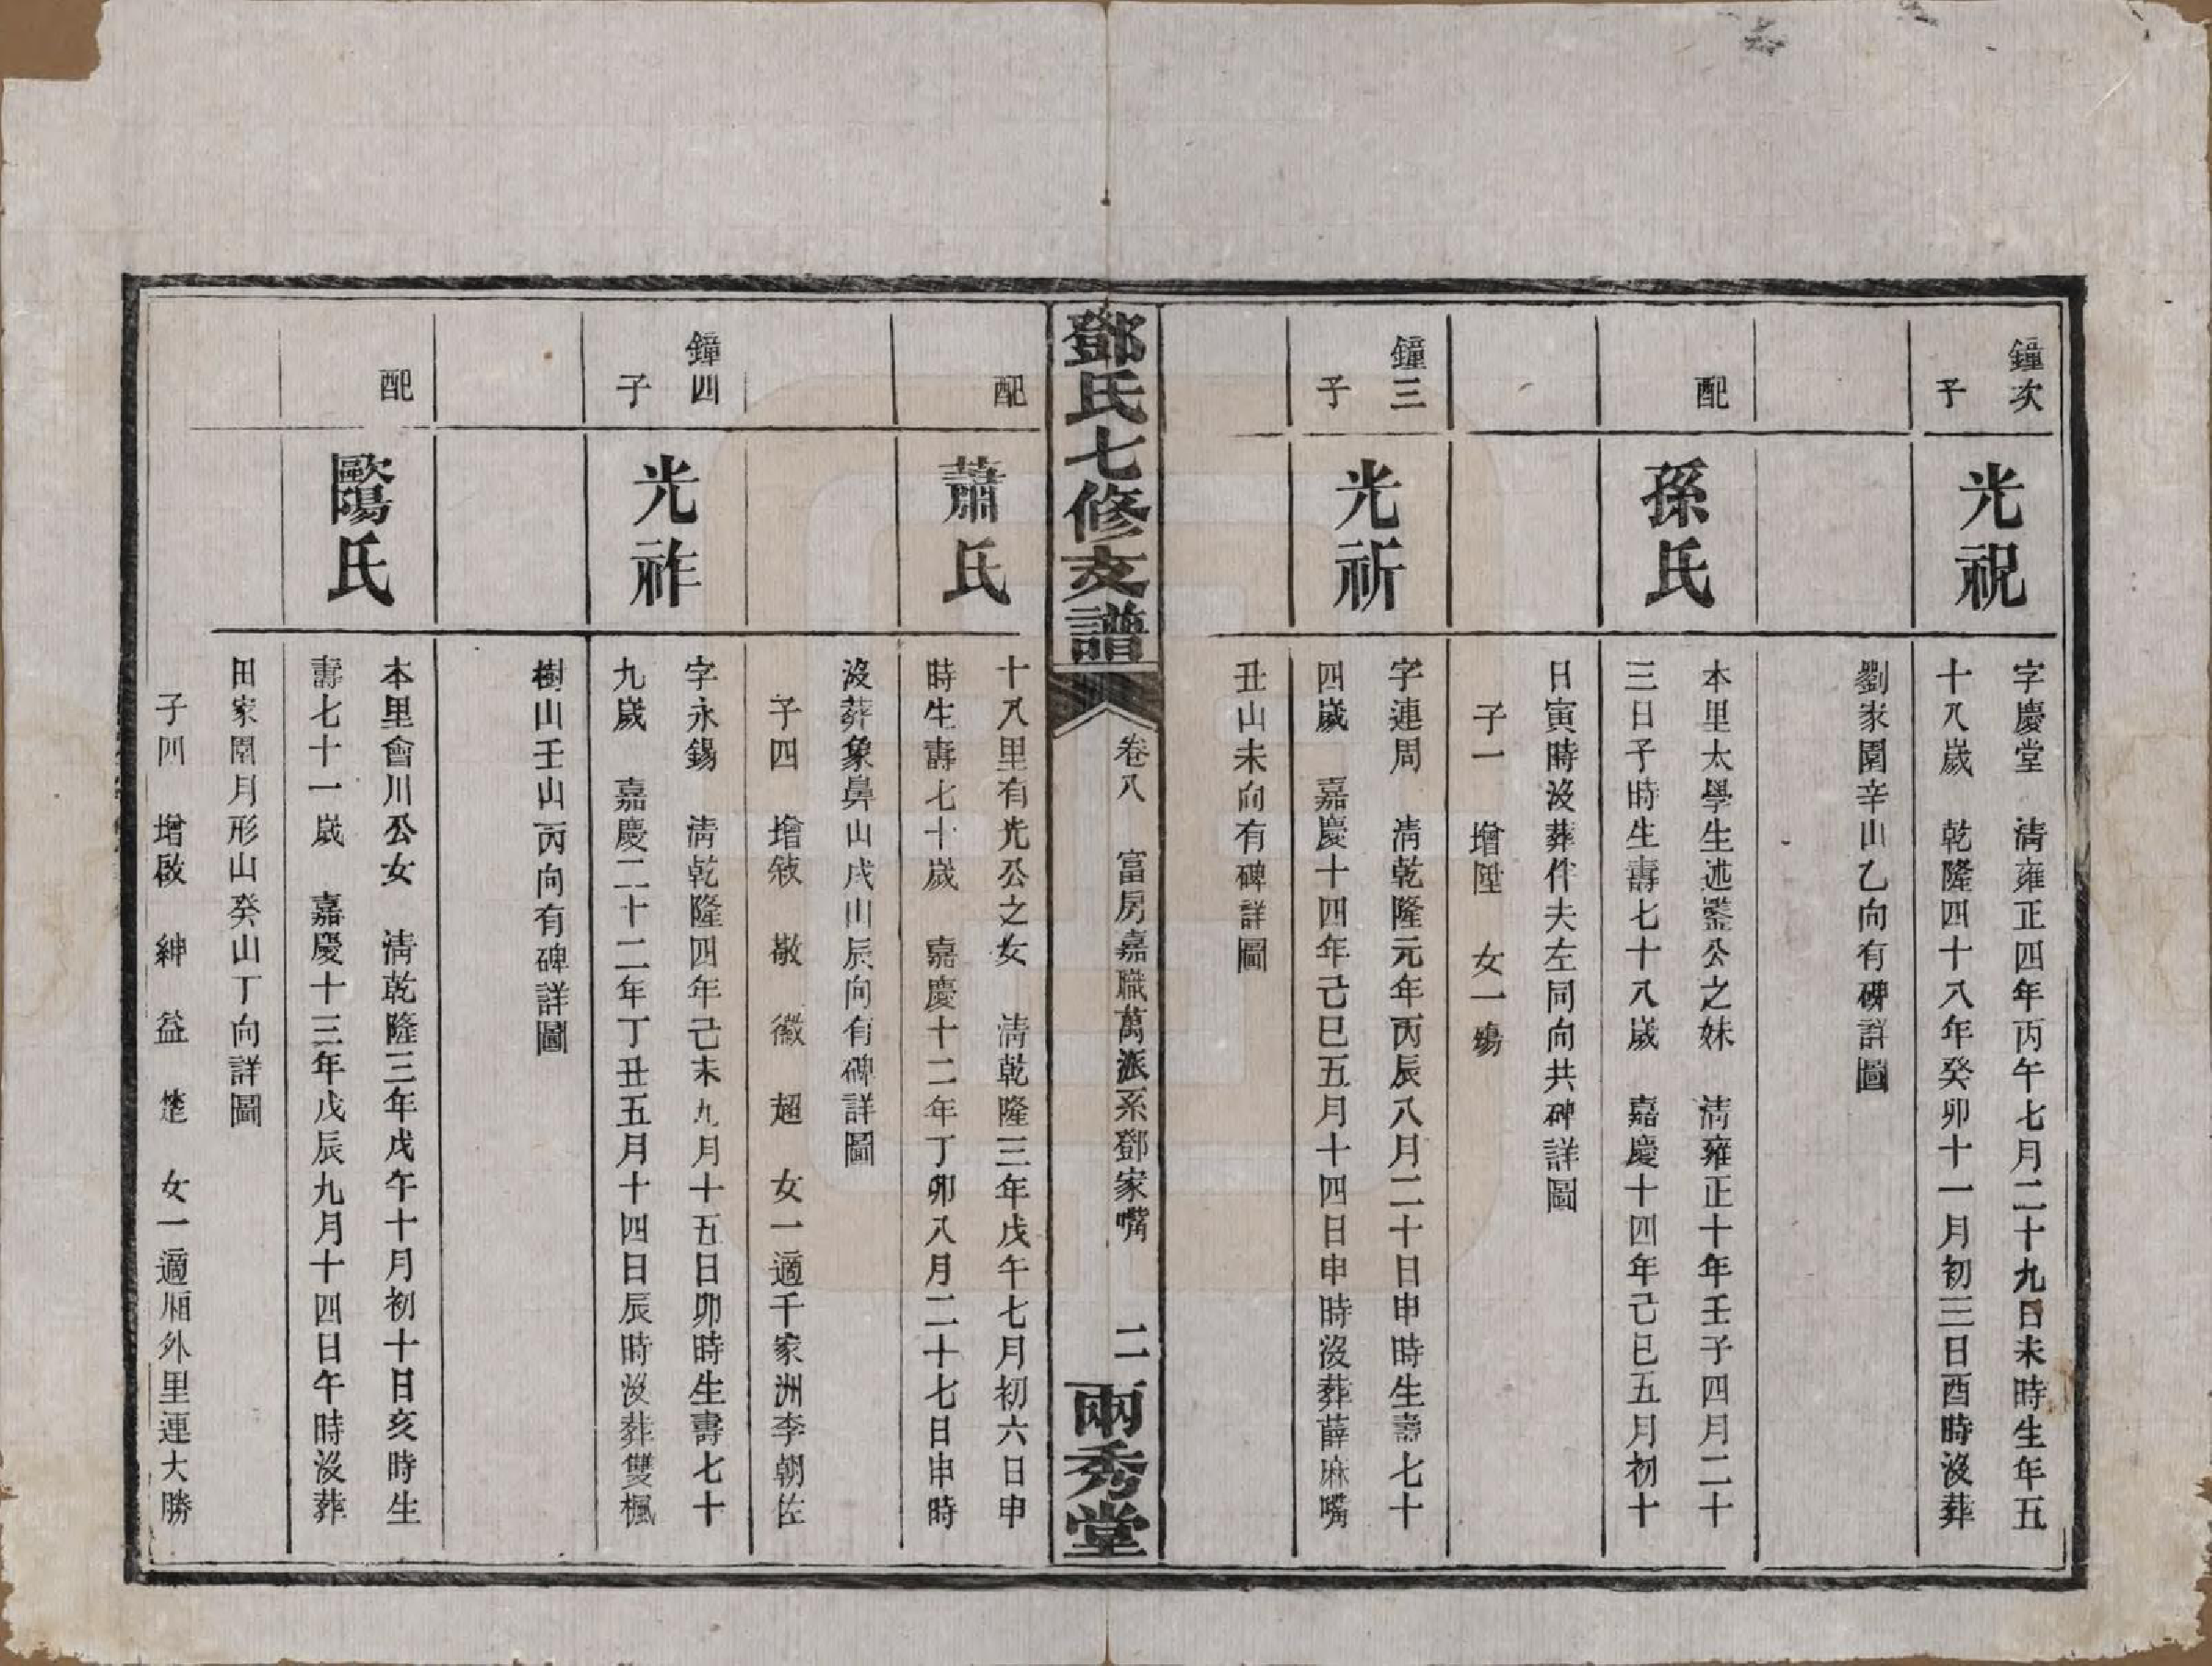 鐘次
子
光祝
字慶堂　清雍正四年丙午七月二十九日未時生年五
十八歲　乾隆四十八年癸卯十一月初三日酉時沒葬
劉家園辛山乙向有碑詳圖
配
孫氏
本里太學生述鑒公之妹　清雍正十年壬子四月二十
三日子時生壽七十八歲　嘉慶十四年己巳五月初十
日寅時沒葬伴夫左同向共碑詳圖
子一　增陞　女一殤
鐘三
子
光祈
字連周　清乾隆元年丙辰八月二十日申時生壽七十
四歲　嘉慶十四年己巳五月十四日申時沒葬薛麻嘴
丑山未向有碑詳圖
鄧氏七修支譜
卷八　富房嘉職萬派系鄧家嘴
二
兩秀堂
配
蕭氏
十八里有光公之女　清乾隆三年戊午七月初六日申
時生壽七十歲　嘉慶十二年丁卯八月二十七日申時
沒葬象鼻山戌山辰向有碑詳圖
子四　增敍　敬　徽　超　女一適千家洲李朝佐
鐘四
子
光祚
字永錫　清乾隆四年己未九月十五日卯時生壽七十
九歲　嘉慶二十二年丁丑五月十四日辰時沒葬雙楓
樹山壬山丙向有碑詳圖
配
歐陽氏
本里會川公女　清乾隆三年戊午十月初十日亥時生
壽七十一歲　嘉慶十三年戊辰九月十四日午時沒葬
田家園月形山癸山丁向詳圖
子四　增啟　紳　益　楚　女一適廂外里連大勝